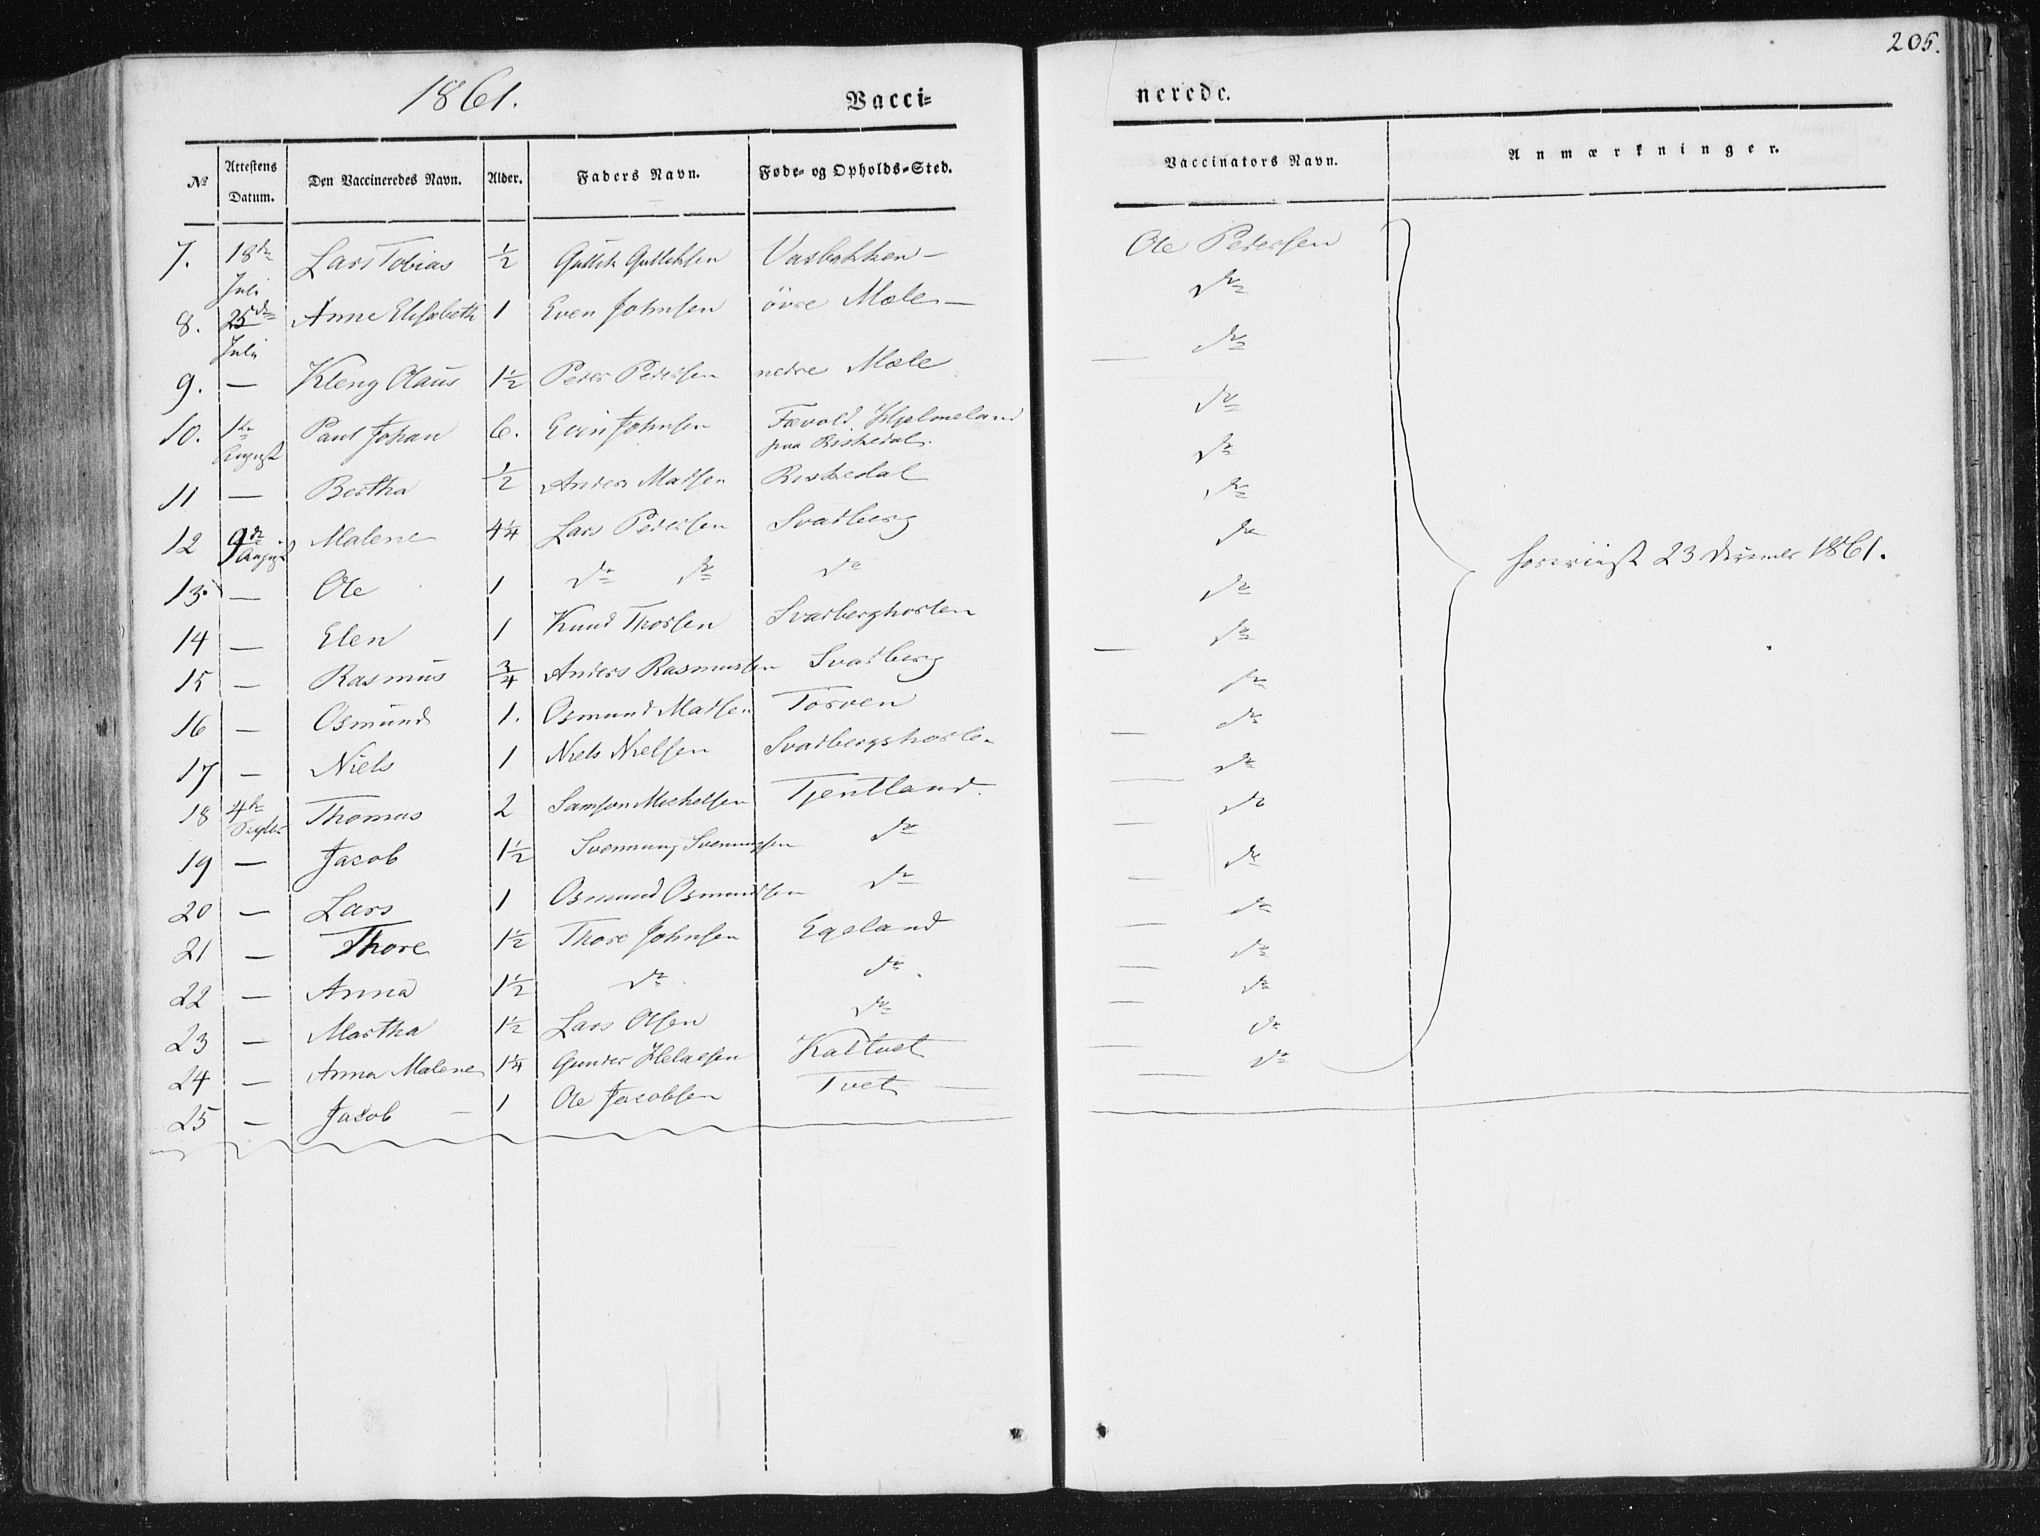 205.
1861.
Vacci=
nerede.
No
Attestens Datum.
Den Vaccineredes Navn.
Alder.
Faders Navn.
Føde- og Opholds-Sted.
Vaccinators Navn.
Anmærkninger.
7. 18de Juli Lars Tobias ½ Gullik Gulliksen Vasbakken — Ole Pedersen
8. 25de Juli Anne Elisabeth 1 Even Johnsen övre Mæle — do
9. — Kleng Olaus 1½ Peder Pedersen nedre Mæle do
10. 1te August Paul Johan 6. Even Johnsen Hjelmeland paa Riskedal. do
11 — Bertha ½ Anders Madsen Riskedal do
12 9de August Malene 4¼ Lars Pedersen Svadberg do
13. — Ole 1 do do do do
14 — Elen 1 Knud Thorsen Svadberghorlen do
15 — Rasmus ¾ Anders Rasmussen Svadberg do
16 — Osmund 1. Osmund Madsen Torven do
17 — Niels 1 Niels Nielsen do
18 4de Thomas 2 Samson Michelsen Tjentland. do
19 — Jacob 1½ Svennung Svennungsen do do
20 — Lars 1 Osmund Osmundsen do do
21 — Thore 1½ Thore Johnsen Egeland do
22 — Anna 1½ do do. do
23 — Martha 1½ Lars Olsen do do
24 — Anna Malene 1¼ Gunder Kaltvet do
25 — Jacob — 1 Ole Jacobsen Tvet — do
23 1861.